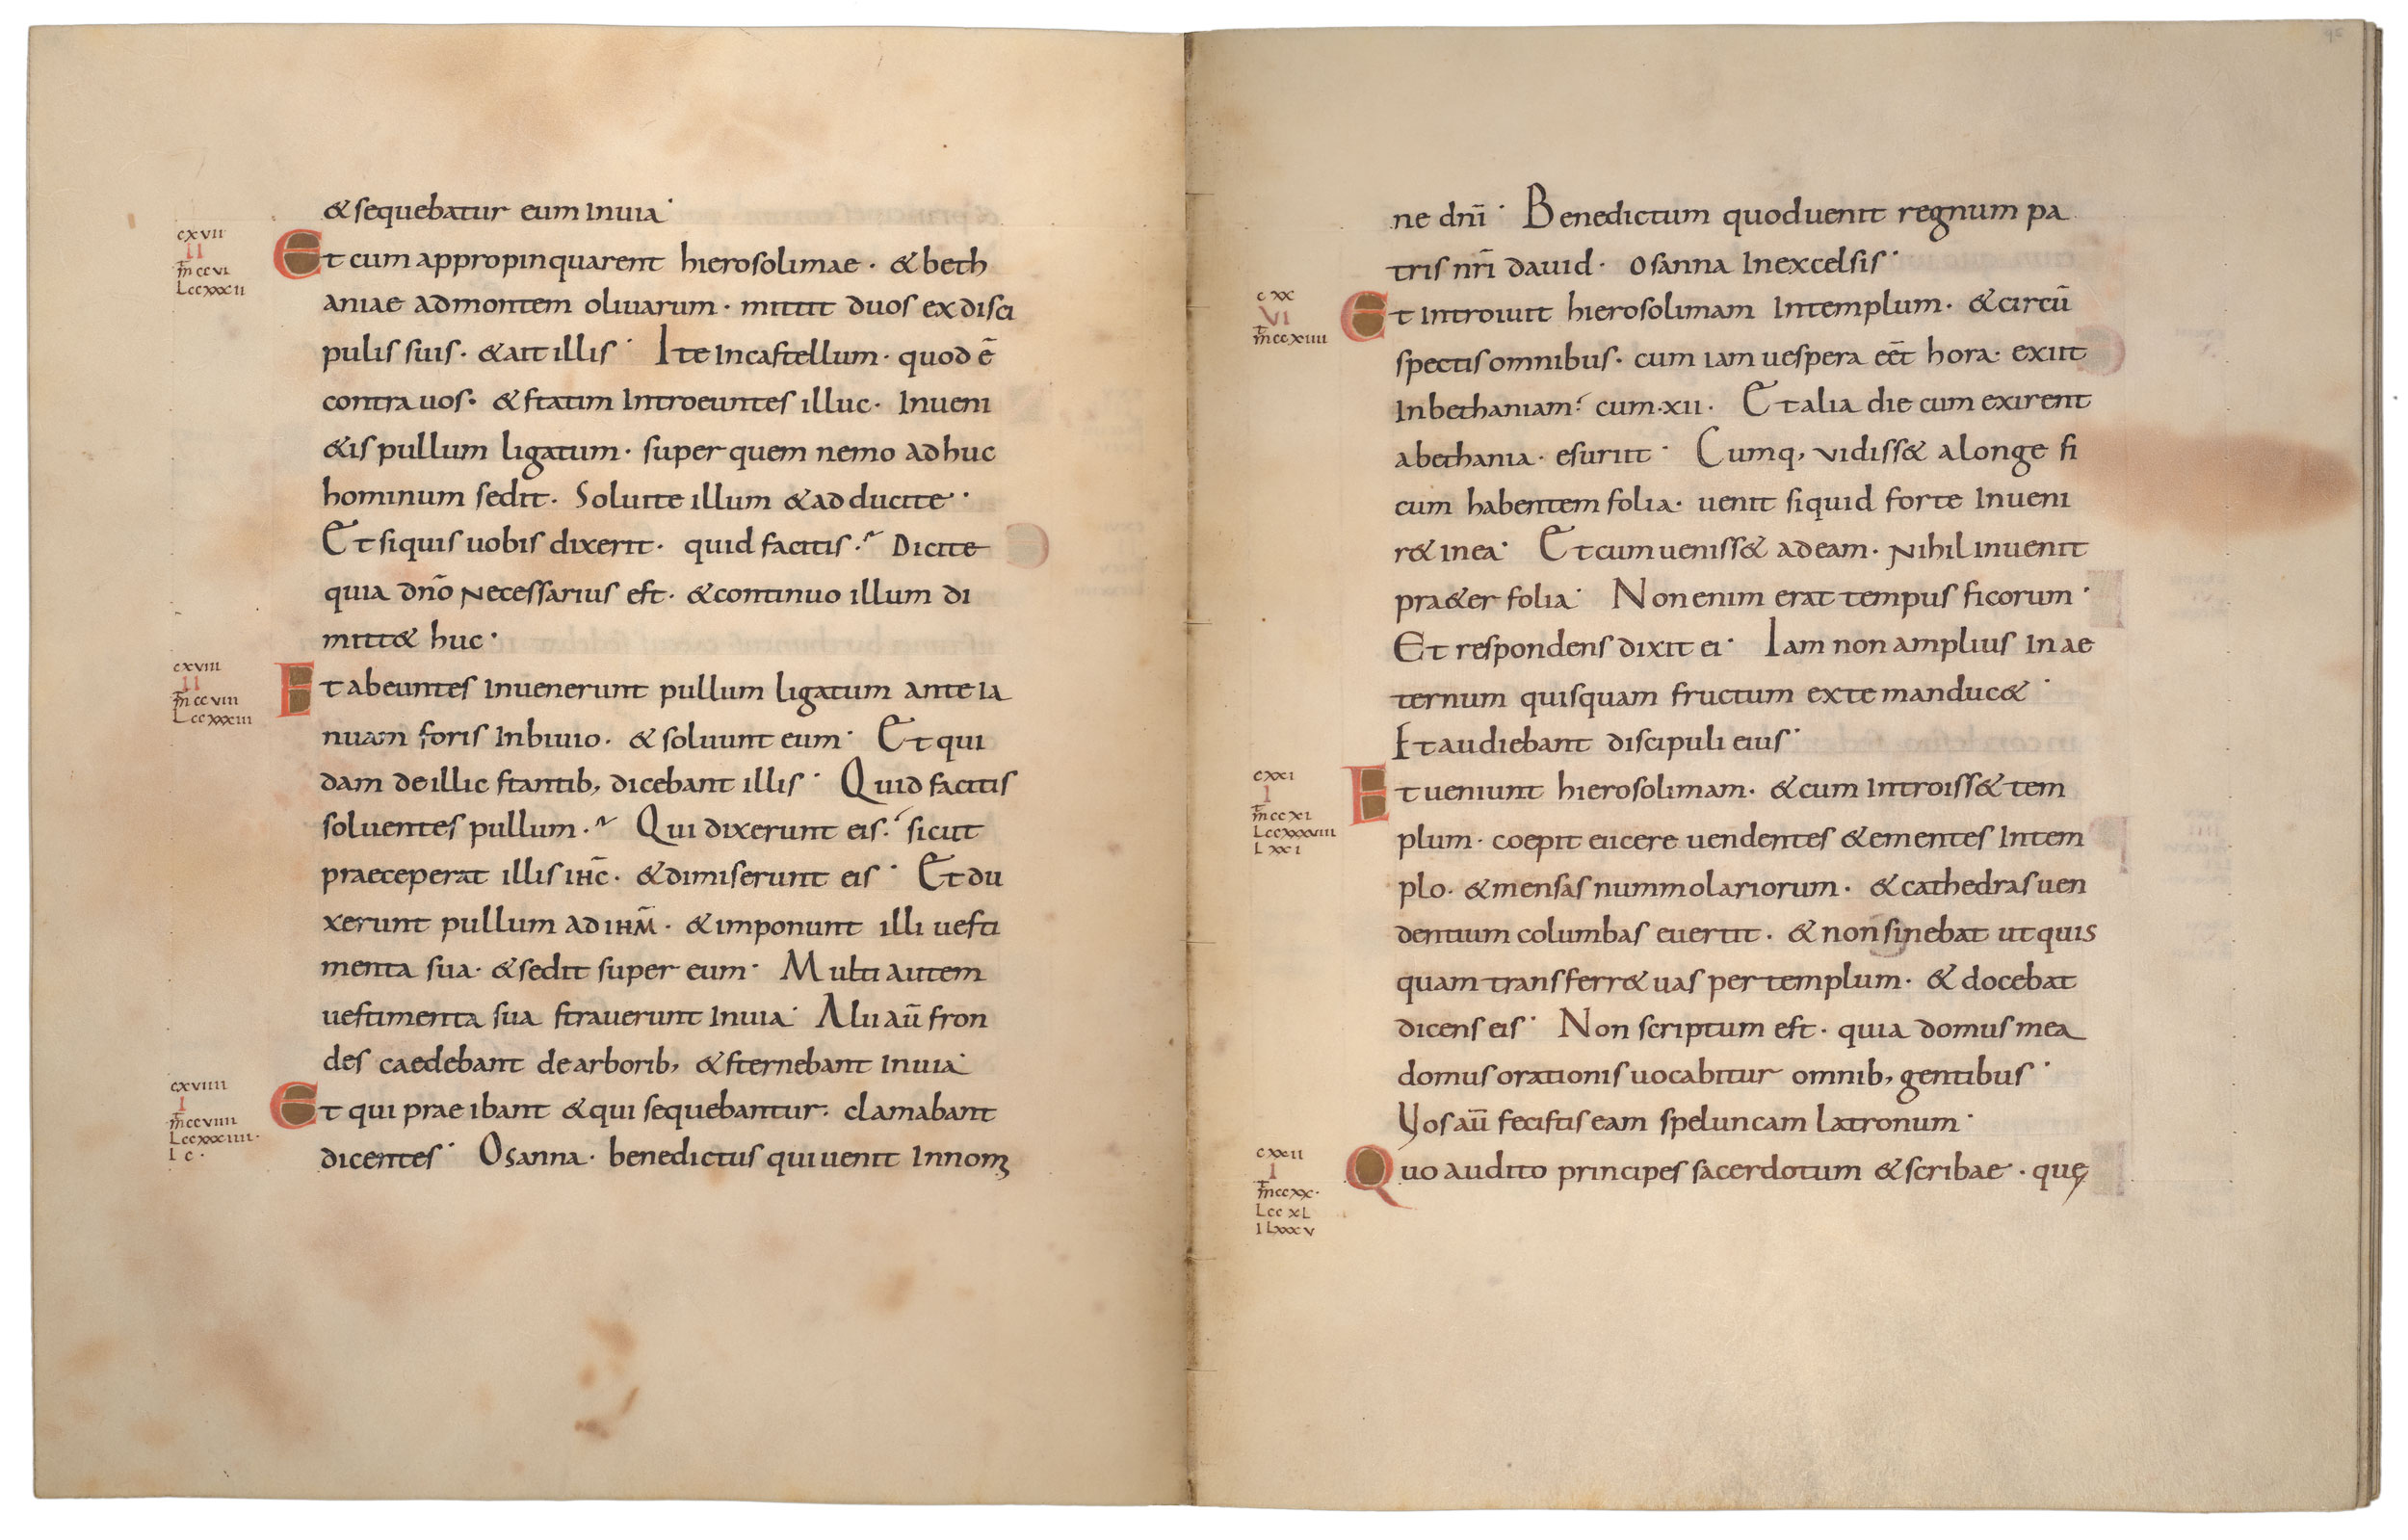 & sequebatur eum Inuia·
cxvii
II
m̄ ccvi
L ccxxxii
Et cum appropinquarent hierosolimae · & beth
aniae admontem oliuarum · mittit duos ex disci
pulis suis · & ait illis · Ite Incastellum · quod ē
contra uos · & statim Introeuntes illuc · Inueni
&is pullum ligatum · super quem nemo adhuc
hominum sedit · Soluite illum & adducite ·
Et siquis uobis dixerit · quid facitis · Dicite
quia dn̄o necessarius est · & continuo illum di
mitt& huc ·
cxviii
II
m̄ ccviii
L ccxxxiii
Et abeuntes Inuenerunt pullum ligatum ante ia
nuam foris Inbiuio · & soluunt eum · Et qui
dam de illic stantib, dicebant illis · Quid facitis
soluentes pullum · Qui dixerunt eis · sicut
praeceperat illis ihc̄ · & dimiserunt eis · Et du
xerunt pullum ad ihm̄ · & imponunt illi uesti
menta sua · & sedit super eum · Multi autem
uestimenta sua strauerunt Inuia · Alii aū fron
des caedebant de arborib, & sternebant Inuia ·
cxviiii
I
m̄ ccviiii
L ccxxxiiii ·
I c ·
Et qui prae ibant & qui sequebantur · clamabant
dicentes · Osanna · benedictus qui uenit Innomi
ne dnī · Benedictum quod uenit regnum pa
tris nr̄i dauid · Osanna Inexcelsis ·
cxx
VI
m̄ ccxiiii
Et Introiuit hierosolimam Intemplum · & circū
spectis omnibus · cum iam uespera eēt hora · exiit
Inbethaniam · cum · xii · Et alia die cum exirent
abethania · esuriit · Cumq, vidiss& alonge fi
cum habentem folia · uenit si quid forte Inueni
r& inea · Et cum ueniss& adeam · nihil inuenit
pra&er folia · Non enim erat tempus ficorum ·
Et respondens dixit ei · Iam non amplius In ae
ternum quisquam fructum exte manduc& ·
Et audiebant discipuli eius ·
cxxi
I
m̄ ccxi
L ccxxxviii
I xxi
Et ueniunt hierosolimam · & cum Introiss& tem
plum · coepit eiicere uendentes & ementes Intem
plo · & mensas nummolariorum · & cathedras uen
dentium columbas euertit · & non sinebat ut quis
quam transferr& uas per templum · & docebat
dicens eis · Non scriptum est · quia domus mea
domus orationis uocabitur omnib, gentibus ·
Vos aū fecistis eam speluncam latronum ·
cxxii
I
m̄ ccxx ·
L ccxL
I Lxxxv
Quo audito principes sacerdotum & scribae · quę